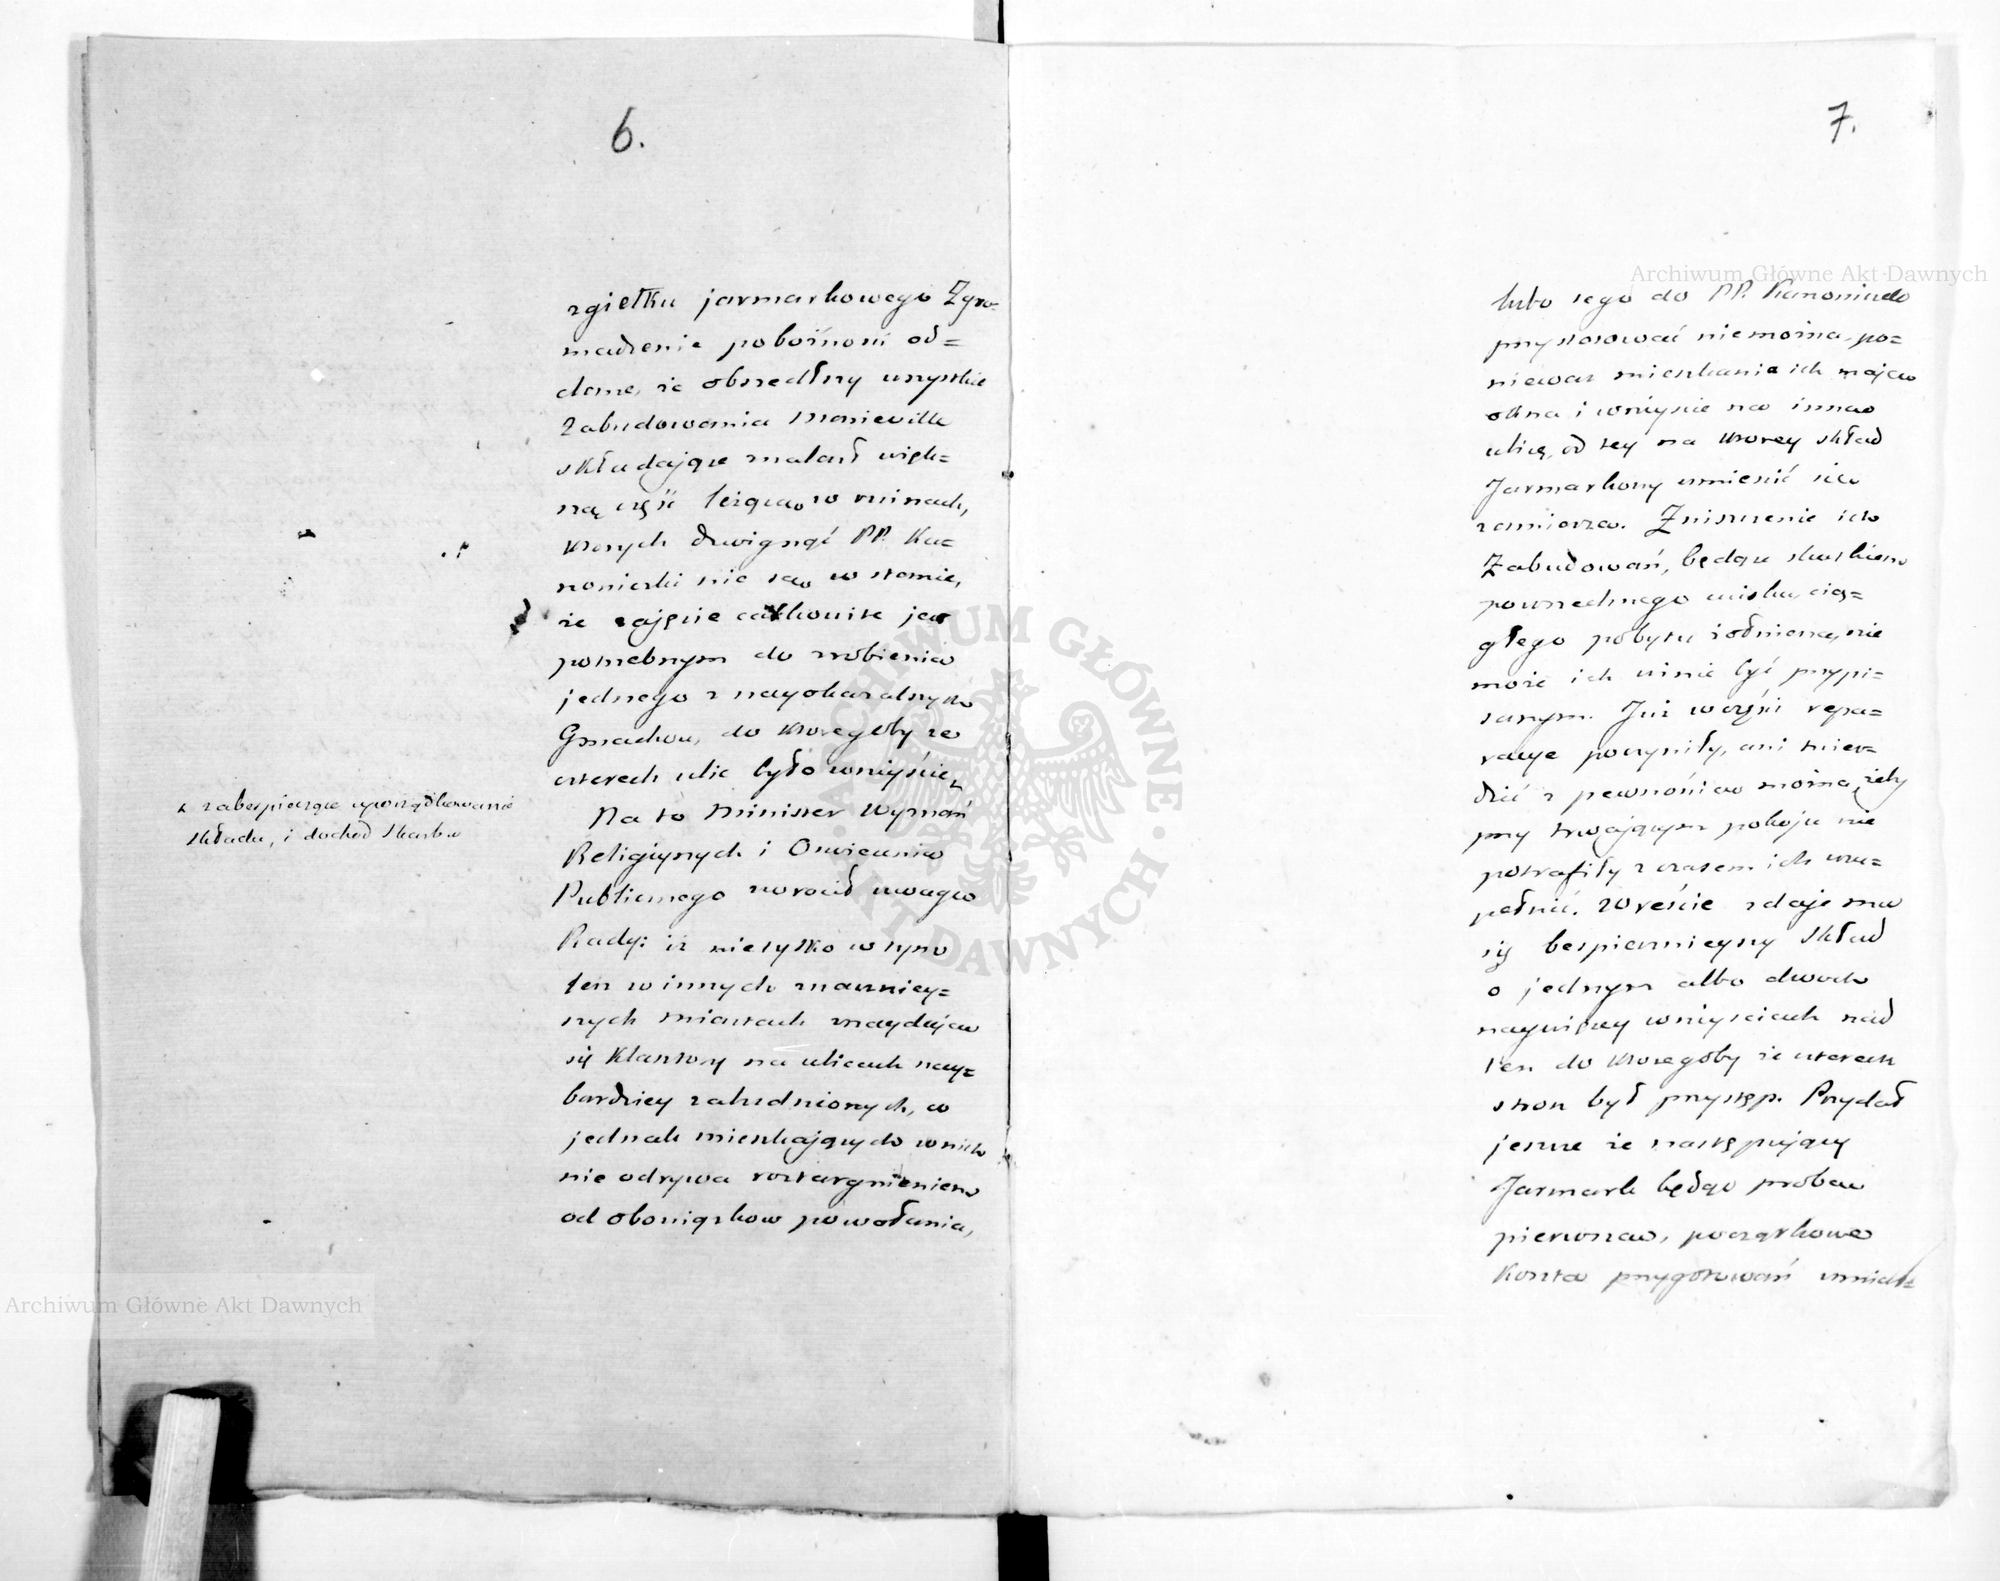 6.
zgiełku jarmarkowego Zgro=
madzenie pobożności od=
dane, że obszedłszy wszystkie
Zabudowania Marieville
składające znalazł więk=
szą część leżącą w ruinach,
ktorych dzwignąć PP. Ka=
noniczki nie są w stanie,
że zajęcie całkowite jest
potrzebnym do zrobienia
jednego z nayokazalszych
Gmachow, do ktoregoby ze
czterech ulic było wniyście,
zabespieczące uporządkowanie
składu, i dochod Skarbu
Na to Minister Wyznań
Religiynych i Oświecenia
Publicznego zwrocił uwagę
Rady: iż nietylko w tym
lecz w innych znaczniey=
szych miastach znaydują
się Klasztory na ulicach nay=
bardziey zaludnionych, co
jednak mieszkających w nich
nie odrywa roztargnieniem
od obowiązkow powołania,
7.
lubo tego do PP. Kanoniczek
przystosować niemożna, po=
nieważ mieszkania ich mają
okna i wniyście na inną
ulicę, od tey na ktorey skład
Jarmarkowy umieścić się
zamierza. Zniszczenie ich
Zabudowań, będące skutkiem
powszechnego ucisku, cią=
głego pobytu żołnierza, nie
może ich winie być przypi=
sanym. Już w części repa=
racye poczyniły, ani twier=
dzić z pewnością można, żeby
przy trwającym pokoju nie
potrafiły z czasem ich uzu=
pełnić. Wreście zdaje mu
się bespiecznieyszy skład
o jednym albo dwoch
naywięcey wniyściach nad
ten do ktoregoby ze czterech
stron był przystęp. Przydał
jeszcze że następujący
Jarmark będąc probą
pierwszą, początkowe
Koszta przygotowań umiar=
Archiwum Główne Akt Dawnych
Archiwum Główne Akt Dawnych
ARCHIWUM GŁÓWNE AKT DAWNYCH